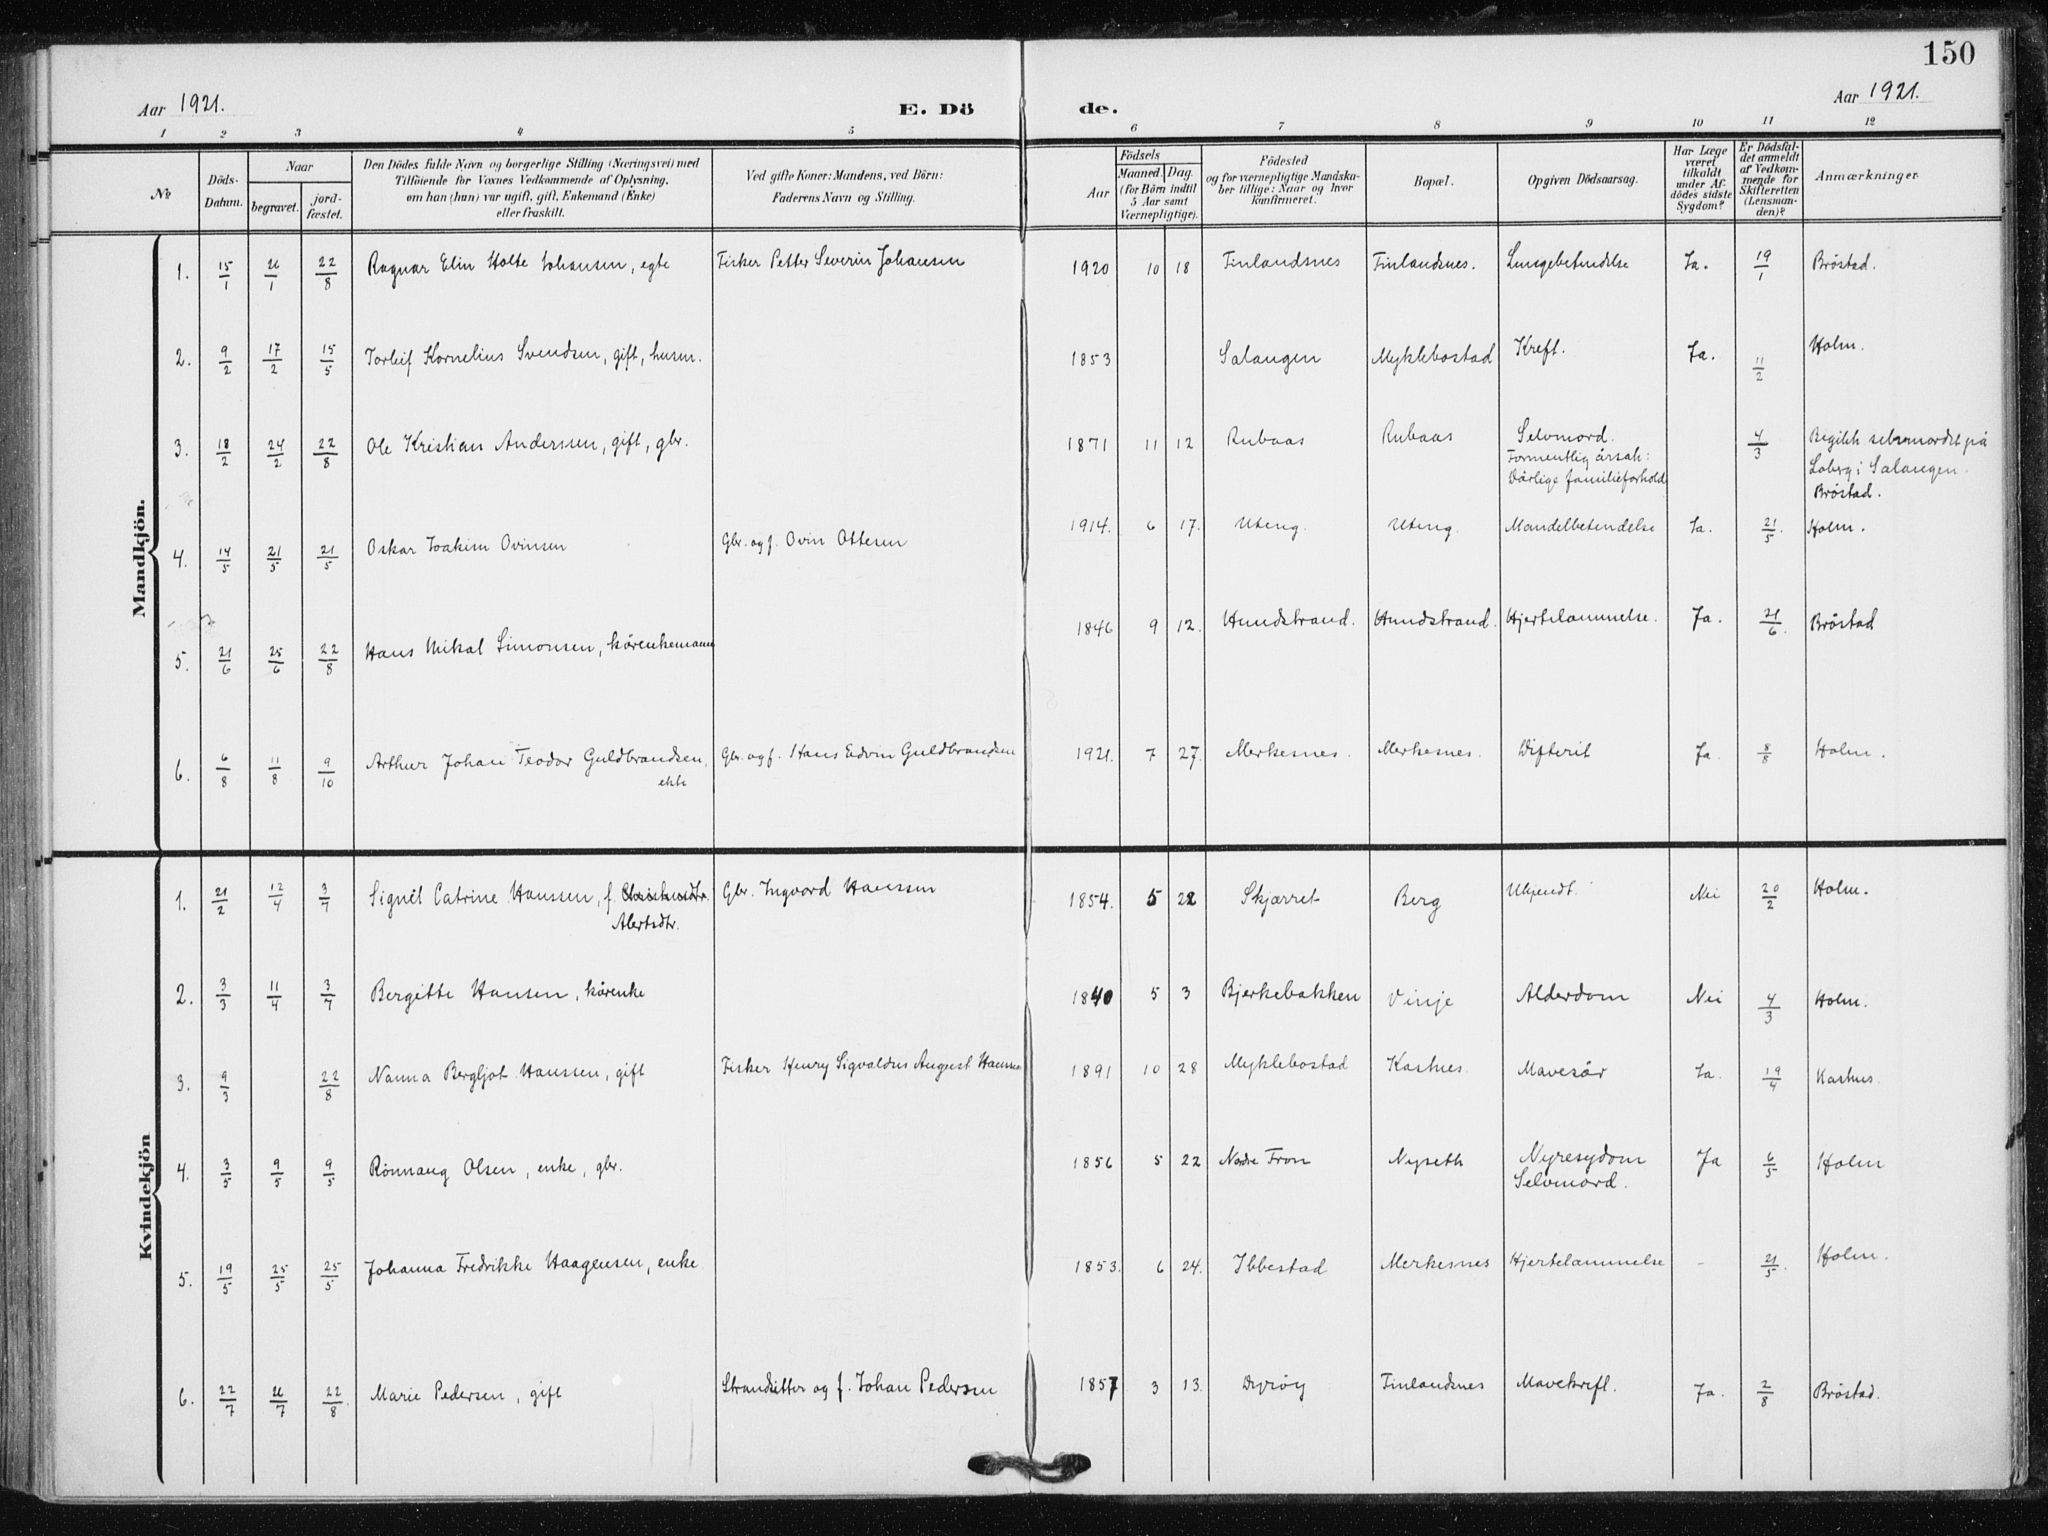 150
Aar 1921. E. Dö de. Aar 1921.
1 2 3 4 5 6 7 8 9 10 11 12
No
Döds-Datum.
Naar
begravet.
jord-fæstet.
Den Dödes fulde Navn og borgerlige Stilling (Næringsvei) med
Tilföiende for Voxnes Vedkommende af Oplysning,
om han (hun) var ugift, gift, Enkemand (Enke)
eller fraskilt.
Ved gifte Koner: Mandens, ved Börn:
Faderens Navn og Stilling.
Födsels
Aar
Maaned. Dag.
(for Börn indtil
5 Aar samt
Værnepligtige).
Födested
og for værnepligtige Mandska-
ber tillige: Naar og hvor
konfirmeret.
Bopæl.
Opgiven Dödsaarsag.
Har Læge
været
tilkaldt
under Af-
dödes sidste
Sygdom?
Er Dödsfal-
det anmeldt
af Vedkom-
mende for
Skifteretten
(Lensman-
den)?
Anmærkninger
Mandkjön.
1. 15/1 26/1 22/8 Ragnar Elin Holte Johansen, egte Fisker Petter Severin Johansen 1920 10 18 Finlandsnes Finlandsnes. Lungebetendelse Ja. 19/1 Bröstad.
2. 9/2 17/2 15/5 Torleif Kornelius Svendsen, gift, husm. 1853 Salangen Myklebostad Kreft. Ja. 11/2 Holm.
3. 18/2 24/2 22/8 Ole Kristian Anderssen, gift, gbr. 1871 11 12 Rubaas Rubaas Selvmord. 4/3 Begikk selvmordet på
Formentlig årsak: Loberg i Salangen.
Dårlige familieforhold Bröstad.
4. 14/5 21/5 21/5 Oskar Joakim Ovinsen Gbr. og f. Ovin Ottesen 1914. 6 17. Uteng. Uteng. Mandelbetendelse Ja. 21/5. Holm.
5. 21/6 25/6 22/8 Hans Mikal Simonsen, kårenkemann 1846 9 12. Hundstrand. Hundstrand. Hjertelammelse. Ja. 21/6. Bröstad
6. 6/8 11/8 9/10 Arthur Johan Teodor Guldbrandsen, Gbr. og f. Hans Edvin Guldbrandsen 1921. 7 27. Merkesnes. Merkesnes. Difterit Ja. 8/8 Holm.
ekte
Kvindekjön
1. 21/2 12/4 3/7 Signël Catrine Hanssen, f. Gbr. Ingvard Hanssen 1854. 5 22 Skjærret Berg Ukjendt. Nei 20/2 Holm.
Alertsdtr.
2. 3/3 11/4 3/7 Bergitte Hansen, kårenke 1840 5 3 Bjerkebakken Vinje Alderdom Nei 4/3 Holm.
3. 9/3 22/8 Nanna Bergljot Hanssen, gift Fisker Henry Sigvaldus August Hanssen 1891 10 28 Myklebostad Kastnes. Mavesår Ja. 19/4 Kastnes.
4. 3/5 9/5 9/5 Rönnaug Olsen, enke, gbr. 1856 5 22 Nodre Fron Nyseth Nyresydom Ja 6/5 Holm
Selvmord.
5. 19/5 25/5 25/5 Johanna Fredrikke Haagensen, enke 1853. 6 24. Ibbestad Merkesnes Hjertelammelse - 21/5. Holm.
6. 22/7 26/7 22/8 Marie Pedersen, gift Strandsitter og f. Johan Pedersen 1857 3 13. Dyröy Finlandsnes Mavekreft. Ja. 2/8 Bröstad.